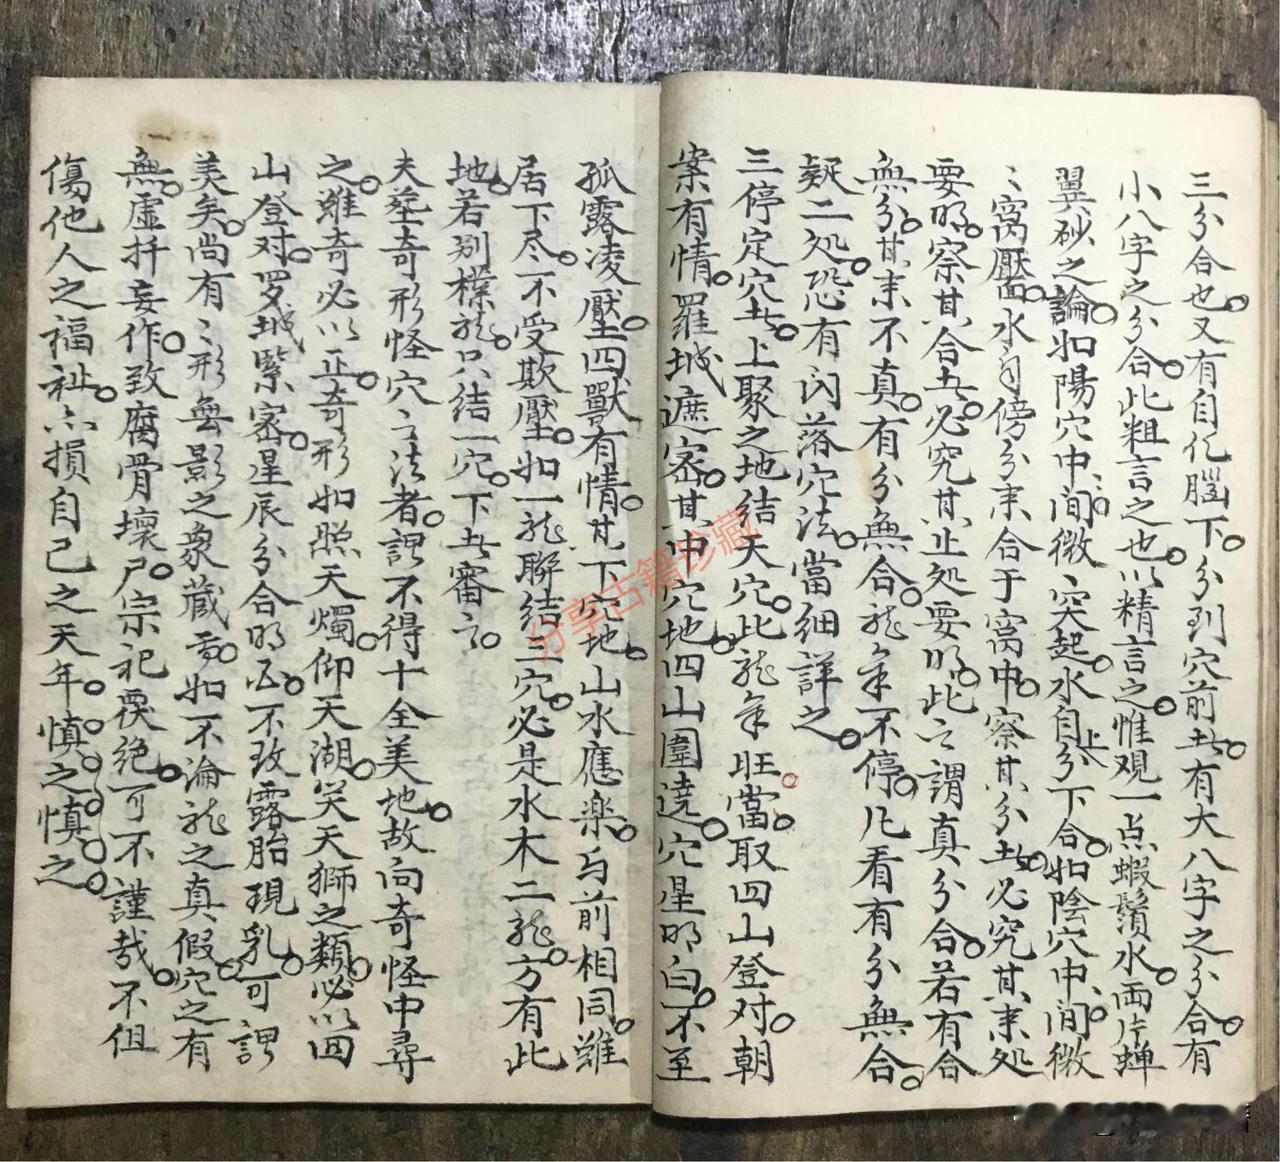 三分合也又有自化腦下分到穴前此有大八字之分合有
小八字之分合此粗言之也以精言之惟观一点蝦鬚水両片蝉
翼砂之論如陽穴中间微突起水自上分下合如陰穴中间微
〻窩壓水自傍分来合于窩中察其分此必究其来処
要明察其合此必究其止処要明此之謂真分合若有合
無分其来不真有分無合龍氣不停凡看有分無合
疑二処恐有闪落穴法當细詳之
三停定穴此上聚之地结天穴此龍氣旺當取四山登对朝
案有情羅城遮密其中穴地四山圍遶穴星明白不至
孤露凌壓四獸有情其下穴地山水應楽与前相同雖
居下尽不受欺壓如一龍聯结三穴必是水木二龍方有此
地若别樣龍只结一穴下此審之
夫葬奇形怪穴之法者謂不得十全美地故向奇怪中尋
之雖奇必以正奇形如照天燭仰天湖笑天獅之類必以四
山登对罗城緊密星辰分合明白不致露胎現乳可謂
美矣尚有〻形無影之衆藏焉如不淪龍之真假穴之有
無虚扦妄作致腐骨壞尸宗祀覆绝可不謹哉不但
傷他人之福祉亦損自己之天年慎之慎之
分享古籍珍藏